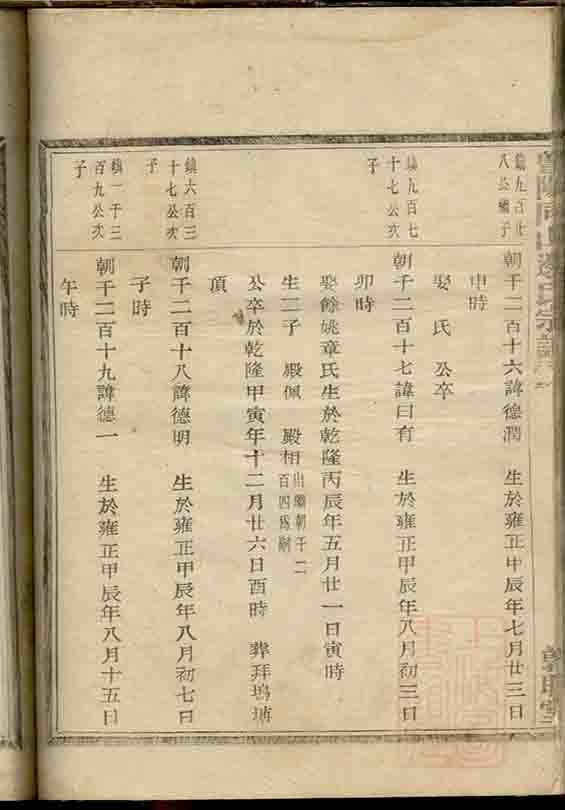 鎮九百廿
八公繼子
朝千二百十六諱德潤 生於雍正甲辰年七月廿三日
申時
娶 氏 公卒
鎮九百七
十七公次
子
朝千二百十七諱曰有 生於雍正甲辰年八月初三日
卯時
娶餘姚章氏生於乾隆丙辰年五月廿一日寅時
生二子 殿佩 殿相出繼朝千二百四爲嗣
公卒於乾隆甲寅年十二月廿六日酉時 葬拜塢埔
頂
鎮六百三
十七公次
子
朝千二百十八諱德明 生於雍正甲辰年八月初七日
子時
鎮一千三
百九公次
子
朝千二百十九諱德一 生於雍正甲辰年八月十五日
午時